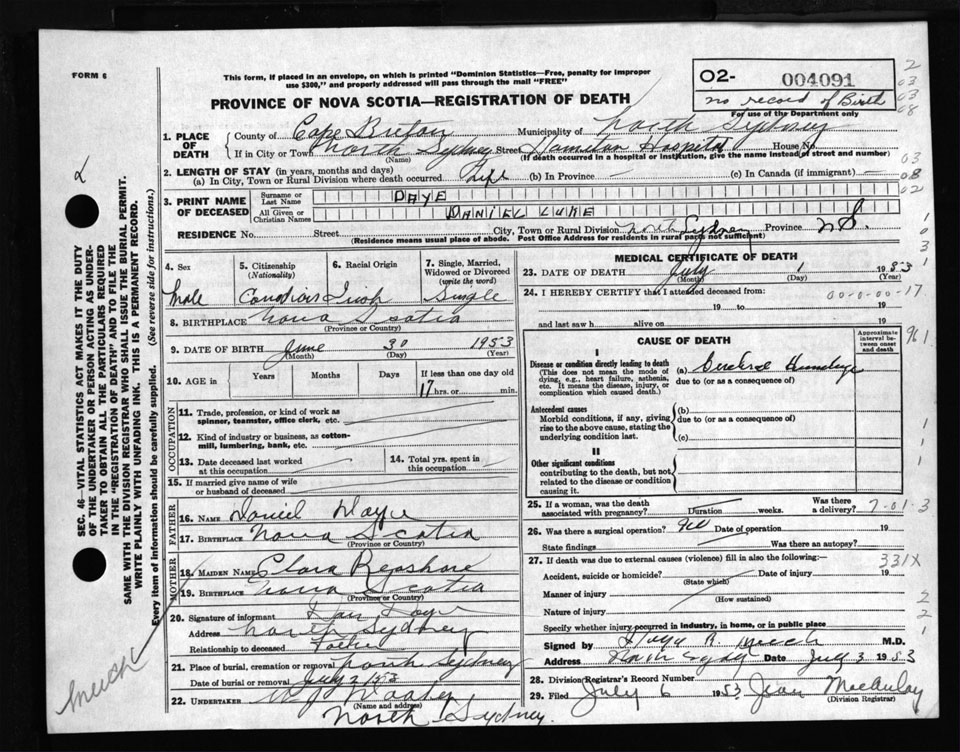 FORM 6
This form, if placed in an envelope, on which is printed "Dominion Statistics—Free, penalty for improper
use $300," and properly addressed will pass through the mail "FREE"
O2- 004091
no record of Birth
For use of the Department only
PROVINCE OF NOVA SCOTIA—REGISTRATION OF DEATH
2
03
03
08
03
08
02
1. PLACE OF DEATH
County of Cape Breton Municipality of North Sydney
If in City or Town North Sydney Street Hamilton Hospital House No.
(Name) (If death occurred in a hospital or institution, give the name instead of street and number)
2. LENGTH OF STAY (in years, months and days)
(a) In City, Town or Rural Division where death occurred Life (b) In Province — (c) In Canada (if immigrant) —
3. PRINT NAME OF DECEASED
Surname or Last Name DAYE
All Given or Christian Names DANIEL LUKE
RESIDENCE No. Street City, Town or Rural Division North Sydney Province N.S.
(Residence means usual place of abode. Post Office Address for residents in rural parts not sufficient)
4. Sex
Male
5. Citizenship
(Nationality)
Canadian
6. Racial Origin
Irish
7. Single, Married,
Widowed or Divorced
(write the word)
Single
8. BIRTHPLACE Nova Scotia
(Province or Country)
9. DATE OF BIRTH June 30 1953
(Month) (Day) (Year)
10. AGE in Years Months Days If less than one day old
17 hrs. or min.
OCCUPATION
11. Trade, profession, or kind of work as
spinner, teamster, office clerk, etc.
12. Kind of industry or business, as cotton-
mill, lumbering, bank, etc.
13. Date deceased last worked
at this occupation
14. Total yrs. spent in
this occupation
15. If married give name of wife
or husband of deceased
FATHER
16. NAME Daniel Daye
17. BIRTHPLACE Nova Scotia
(Province or Country)
MOTHER
18. MAIDEN NAME Clara
19. BIRTHPLACE Nova Scotia
(Province or Country)
20. Signature of informant Dan Daye
Address North Sydney
Relationship to deceased Father
21. Place of burial, cremation or removal North Sydney
Date of burial or removal July 2/1953
22. UNDERTAKER
(Name and address)
North Sydney.
MEDICAL CERTIFICATE OF DEATH
23. DATE OF DEATH July 1 1953
(Month) (Day) (Year)
24. I HEREBY CERTIFY that I attended deceased from:
00-0-00-17
19 to 19
and last saw h alive on 19
CAUSE OF DEATH
Approximate interval between onset and death
961
I
Disease or condition directly leading to death
(This does not mean the mode of
dying, e.g., heart failure, asthenia,
etc. It means the disease, injury, or
complication which caused death.)
(a) Cerebral Hemorrhage
due to (or as a consequence of)
Antecedent causes
Morbid conditions, if any, giving
rise to the above cause, stating the
underlying condition last.
(b)
due to (or as a consequence of)
(c)
II
Other significant conditions
contributing to the death, but not
related to the disease or condition
causing it.
25. If a woman, was the death
associated with pregnancy? Duration weeks. Was there
a delivery?
7-01-3
26. Was there a surgical operation? no Date of operation 19
State findings Was there an autopsy?
27. If death was due to external causes (violence) fill in also the following:
331X
Accident, suicide or homicide? Date of injury 19
(State which)
Manner of injury
(How sustained)
Nature of injury
Specify whether injury occurred in industry, in home, or in public place
Signed by R. Meech M.D.
Address North Sydney Date July 3 1953
28. Division Registrar's Record Number
29. Filed July 6 1953 Jean MacAulay
(Division Registrar)
SEC. 46—VITAL STATISTICS ACT MAKES IT THE DUTY
OF THE UNDERTAKER OR PERSON ACTING AS UNDER-
TAKER TO OBTAIN ALL THE PARTICULARS REQUIRED
IN THE "REGISTRATION OF DEATH" AND TO FILE THE
SAME WITH THE DIVISION REGISTRAR WHO SHALL ISSUE THE BURIAL PERMIT.
WRITE PLAINLY WITH UNFADING INK. THIS IS A PERMANENT RECORD.
Every item of information should be carefully supplied. (See reverse side for instructions.)